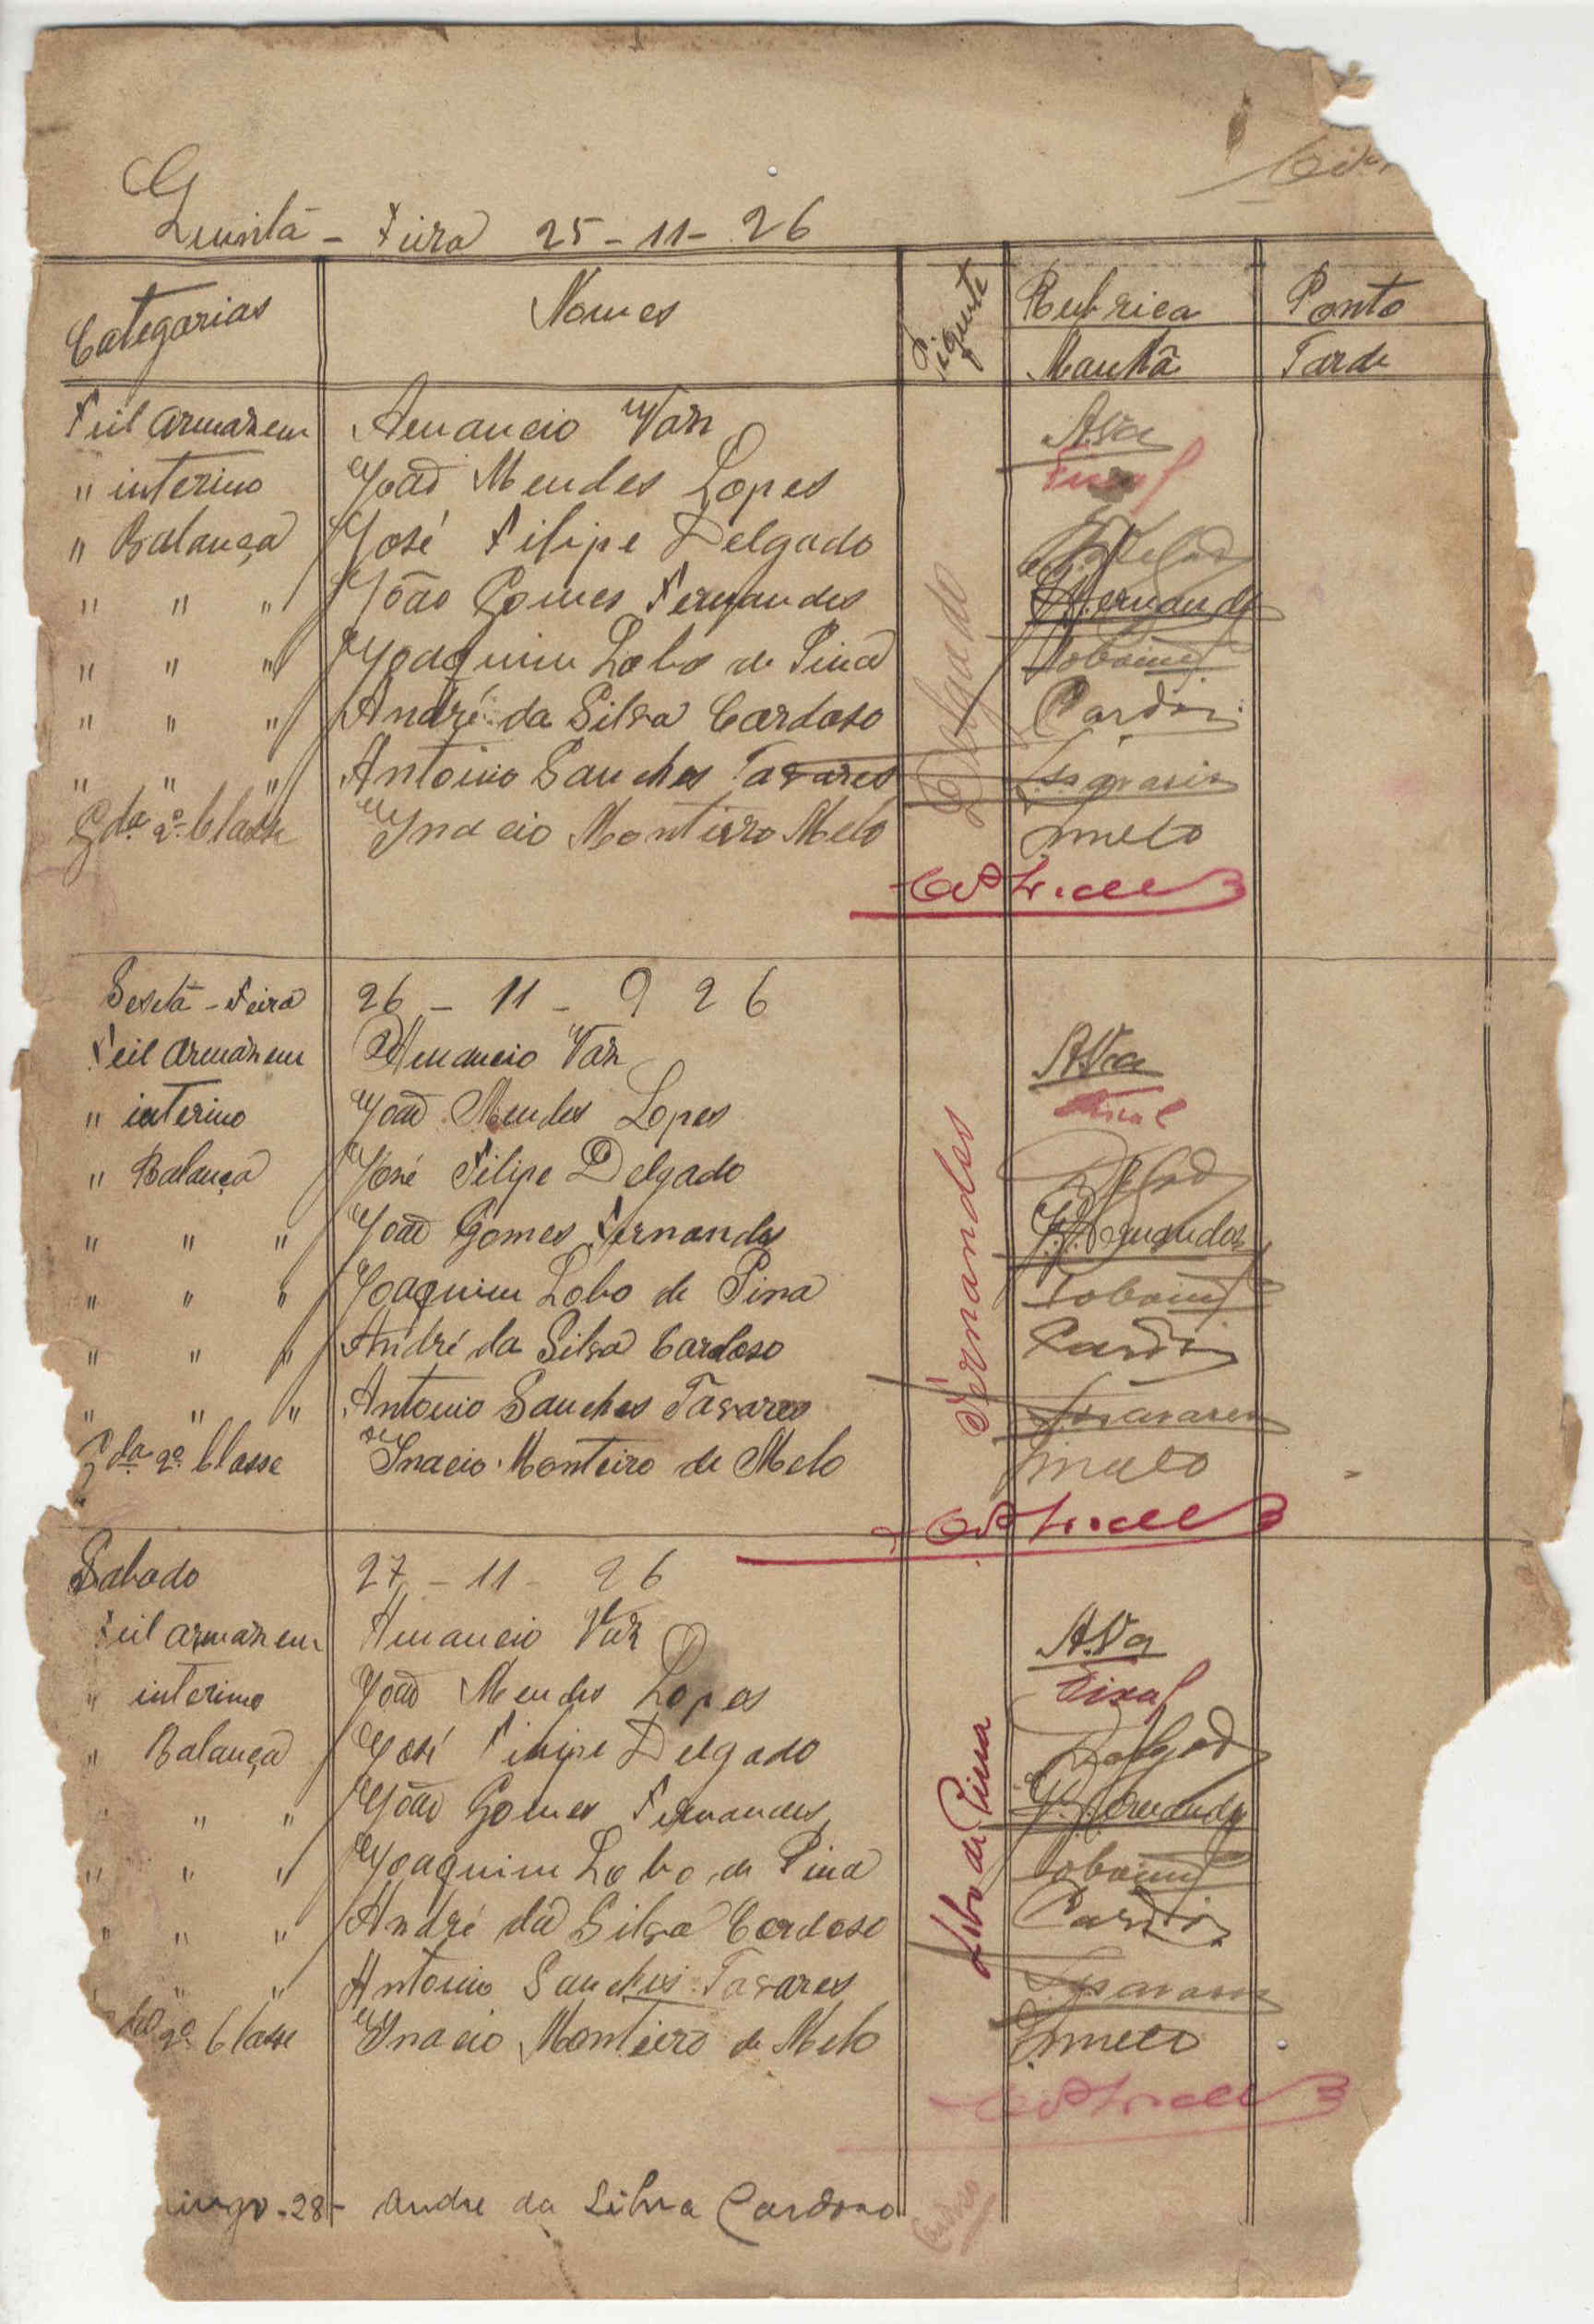 Quintã - Feira 25 - 11 - 26
Categorias Nomes Piquete Rubrica Ponto
Manhã Tarde
Fiel Armazem Amancio Vaz A.Va
" interino João Mendes Lopes Fiscal
" Balança José Filipe Delgado Delgado
" " " João Gomes Fernandes Fernandes
" " " Joaquim Lobo de Pina
" " " André da Silva Cardoso
" " " Antonio Sanches Tavares
Gda 2ª Classe Inacio Monteiro Melo Imelo
Delgado
Sextã - Feira 26 - 11 - 926
Fiel Armazem Amancio Vaz A.Va
" interino João Mendes Lopes Fiscal
" Balança José Filipe Delgado
" " " João Gomes Fernandes J.G.Fernandes
" " " Joaquim Lobo de Pina
" " " André da Silva Cardoso
" " " Antonio Sanches Tavares
Gda 2ª Classe Inacio Monteiro de Melo Imelo
Fernandes
Sabado 27 - 11 - 26
Fiel Armazem Amancio Vaz A.Va
" interino João Mendes Lopes Fiscal
" Balança José Filipe Delgado Delgado
" " " João Gomes Fernandes J.G.Fernandes
" " " Joaquim Lobo de Pina
" " " André da Silva Cardoso
" " " Antonio Sanches Tavares
2ª Classe Inacio Monteiro de Melo Imelo
Lobo de Pina
ingo - 28 - Andre da Silva Cardoso Cardoso